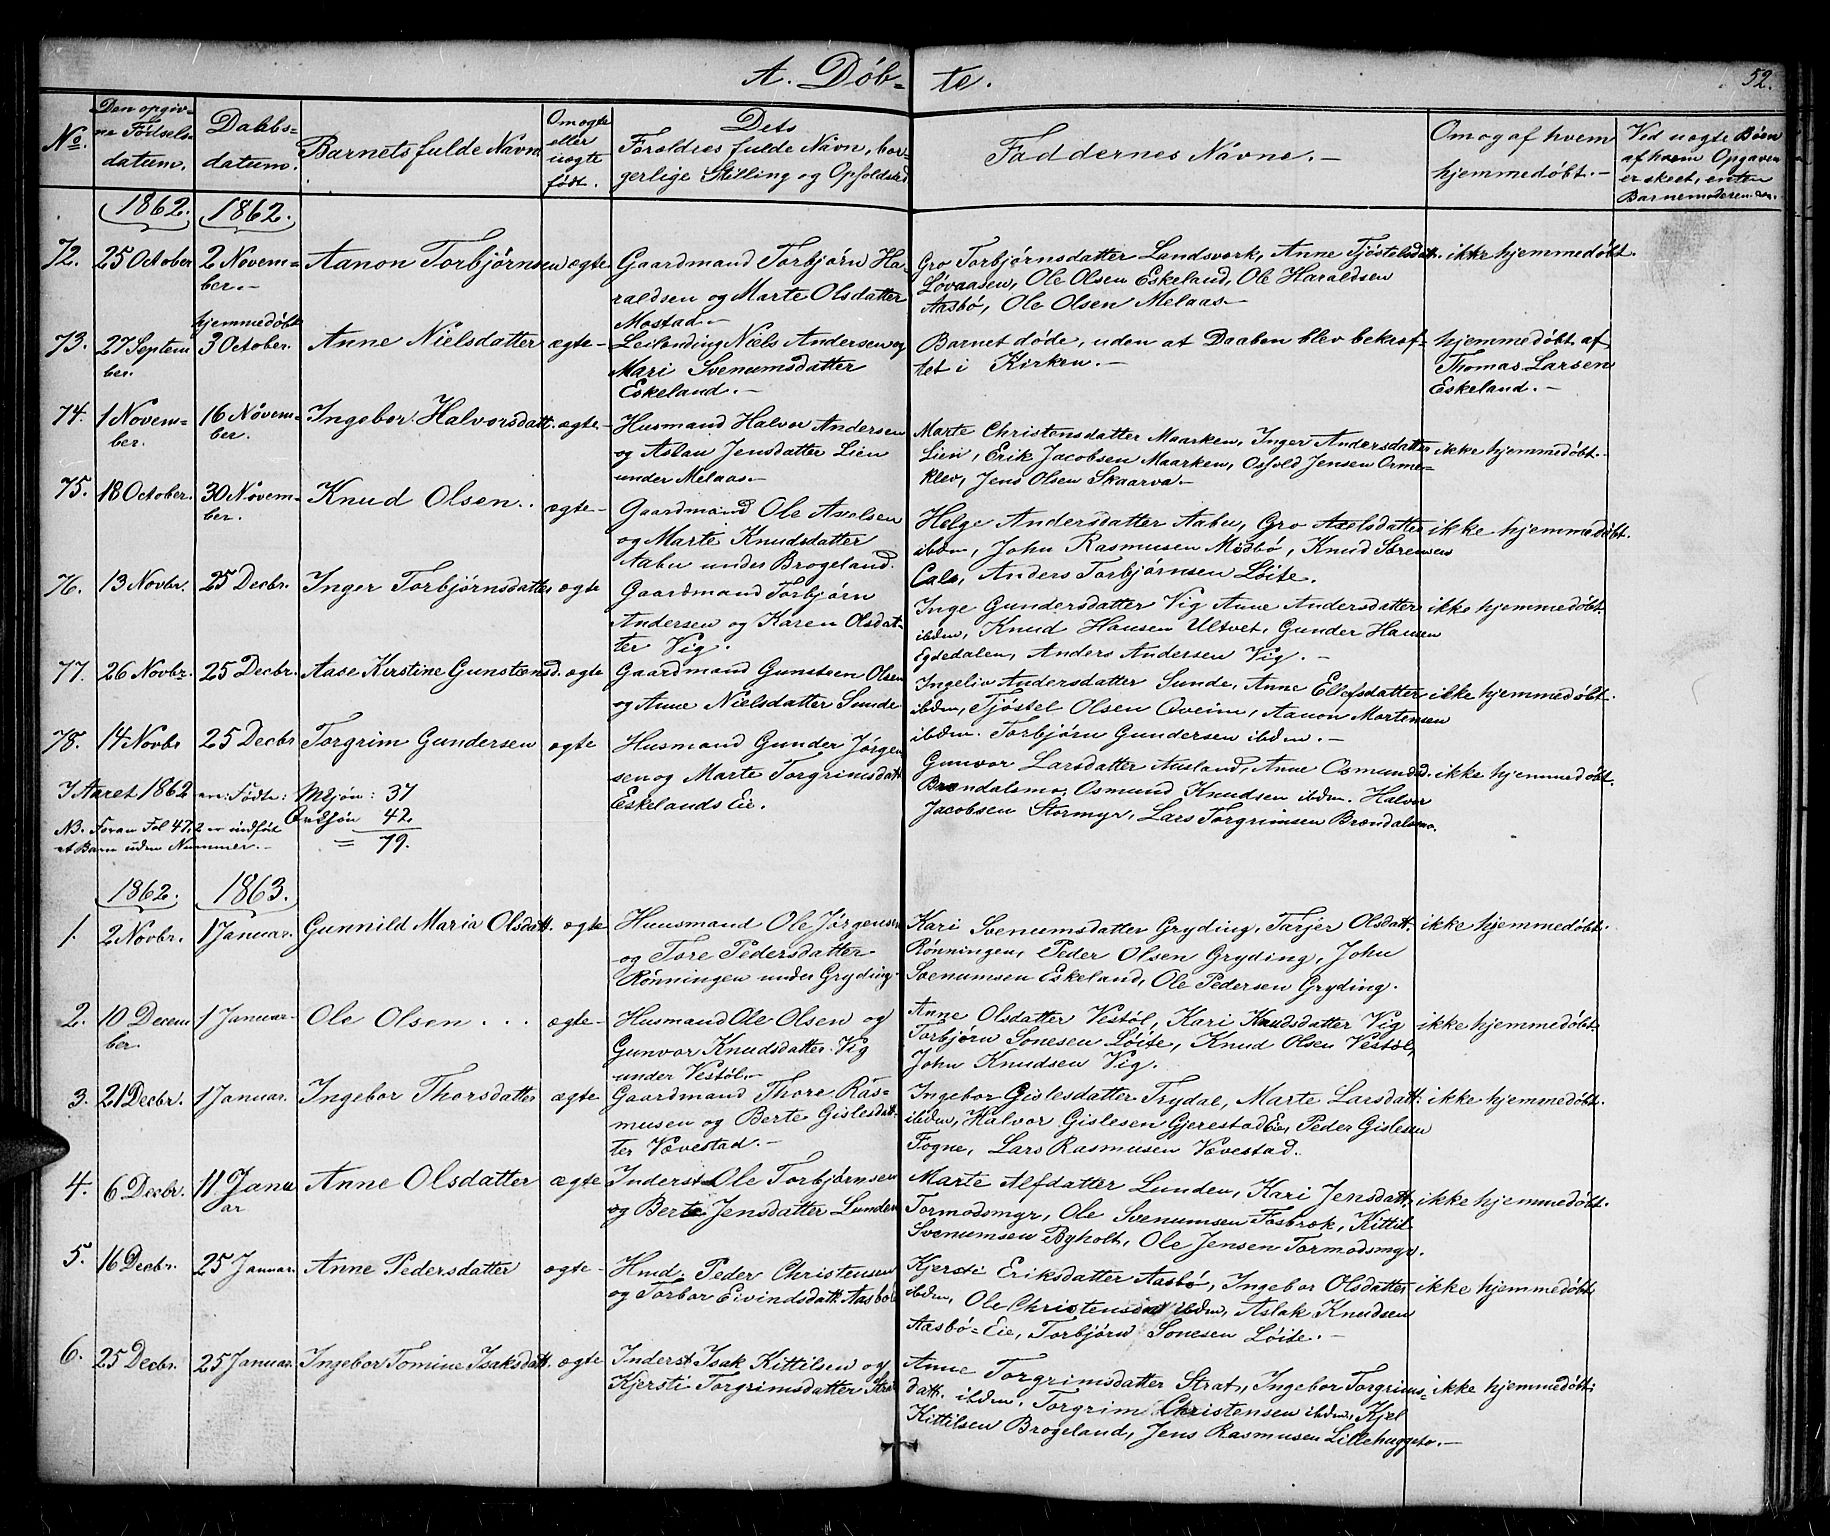 A. Döb-
te.
52.
No.
Den opgiv-
ne Fødsels-
datum.
Daabs-
datum.
Barnets fulde Navn
Om ægte
eller
uægte
født.
Dets
Forældres fulde Navn, bor-
gerlige Stilling og Opholdsted
Faddernes Navne.-
Om og af hvem
hjemmedøbt.-
Ved uægte Børn
af hvem Opgaven
er skeet, enten
Barnemoderen
1862.
1862.
72. 25 October
2 Novem-
ber.-
Aanon Torbjørnsen
ægte
Gaardmand Torbjørn Ha-
raldsen og Marte Olsdatter
Mostad.-
Gro Torbjørnsdatter Landsverk, Anne Tjöstelsdatt.
Lövaasen, Ole Olsen Eskeland, Ole Haraldsen
Aasbö, Ole Olsen Melaas.-
ikke hjemmedøbt.
73. 27 Septem
ber.
hjemmedøbt
3 October.
Anne Nielsdatter
ægte-
Leilending Niels Andersen og
Mari Svenumsdatter
Eskeland.-
Barnet døde, uden at Daaben blev bekræf-
tet i Kirken.-
hjemmedøbt af
Thomas Larsen
Eskeland.-
74. 1 Novem-
ber.
16 Novem-
ber.
Ingebor Halvorsdatt.
ægte-
Husmand Halvor Andersen
og Aslau Jensdatter Lien
under Melaas.-
Marte Christensdatter Maarken, Inger Andersdatter
Lien, Erik Jacobsen Maarken, Osfold Jensen Orme-
klev, Jens Olsen Skaarva.-
ikke hjemmedøbt.
75. 18 October.
30 Novem-
ber.
Knud Olsen..
ægte-
Gaardmand Ole Axelsen
og Marte Knudsdatter
Aabu under Brogeland.
Helge Andersdatter Aabu, Gro Axelsdatter
ibdm, John Rasmusen Mödbö, Knud Sørensen
Cals, Anders Torbjørnsen Löite.
ikke hjemmedøbt.
76. 13 Novbr.
25 Decbr.
Inger Torbjørnsdatter
ægte
Gaardmand Torbjørn
Andersen og Karen Olsdat-
ter Vig.
Inge Gundersdatter Vig Anne Andersdatter
ibdm, Knud Hansen Ultvet, Gunder Hansen
Egdedalen, Anders Andersen Vig.-
ikke hjemmedøbt.
77. 26 Novbr.
25 Decbr.
Aase Kirstine Gunstensd.
ægte
Gaardmand Gunsteen Olsen
og Anne Nielsdatter Sunde
Ingeliv Andersdatter Sunde, Anne Ellefsdatter
ibdm, Tjöstel Olsen Qveim, Aanon Mortensen
ibdm. Torbjørn Gundersen ibdm.-
ikke hjemmedøbt.
78. 14 Novbr
25 Decbr
Torgrim Gundersen
ægte
Husmand Gunder Jörgen
sen og Marte Torgrimsdatt.
Eskelands Eie.
Gunvor Larsdatter Ausland, Anne Osmundsd.
Brændalsmo, Osmund Knudsen ibdm. Halvor
Jacobsen Stormyr, Lars Torgrimsen Brændalsmo.
ikke hjemmedøbt.
I Aaret 1862 ere Fødte: Mkjøn: 37
NB. Foran Fol 47,2 er indført Qvdkjön 42.
et Barn uden Nummer.- = 79.
1862.
1863.
1. 2 Novbr.
1 Januar.
Gunnild Maria Olsdatt.
ægte
Huusmand Ole Jörgensen
og Tore Pedersdatter
Rønningen under Gryding.
Kari Svenumsdatter Gryding, Tarjer Olsdatt.
Rønningen, Peder Olsen Gryding, John
Svenumsen Eskeland, Ole Pedersen Gryding.
ikke hjemmedøbt.
2. 10 Decem
ber.
1 Januar
Ole Olsen...
ægte-
Husmand Ole Olsen og
Gunvor Knudsdatter Vig
under Vestöl.-
Anne Olsdatter Vestöl, Kari Knudsdatter Vig
Torbjørn Sonesen Löite, Knud Olsen Vestöl,
John Knudsen Vig.
ikke hjemmedøbt
3. 21 Decbr.
1 Januar.
Ingebor Thorsdatter
ægte
Gaardmand Thore Ras-
musen og Berte Gislesdat-
ter Vævestad.-
Ingebor Gislesdatter Trydal, Marte Larsdatt.
ibdm, Halvor Gislesen Gjerestad Eie, Peder Gislesen
Fogne, Lars Rasmusen Vævestad.
ikke hjemmedøbt.
4. 6 Decbr.
11 Janu
ar
Anne Olsdatter
ægte
Inderst Ole Torbjørnsen
og Berte Jensdatter Lunden
Marte Alfdatter Lunden, Kari Jensdatt.
Tormodsmyr, Ole Svenumsen Fosbræk, Kittil
Svenumsen Byholt, Ole Jensen Tormodsmyr.
ikke hjemmedøbt.
5. 16 Decbr.
25 Januar.
Anne Pedersdatter
ægte-
Hmd. Peder Christensen
og Torbor Eivindsdatt. Aasbö
Kjersti Eriksdatter Aasbö, Ingebor Olsdatter
ibdm, Ole Christensen ibdm, Aslak Knudsen
Aasbö-Eie, Torbjørn Sonesen Löite.-
ikke hjemmedøbt
6. 25 Decbr.
25 Januar.
Ingebor Tomine Isaksdatt.
ægte
Inderst Isak Kittilsen og
Kjersti Torgrimsdatter Strat
Anne Torgrimsdatter Strat, Ingebor Torgrims-
datt. ibdm, Torgrim Christensen ibdm, Kjel
Kittilsen Brogeland, Jens Rasmusen Lillehuggeto.-
ikke hjemmedøbt.